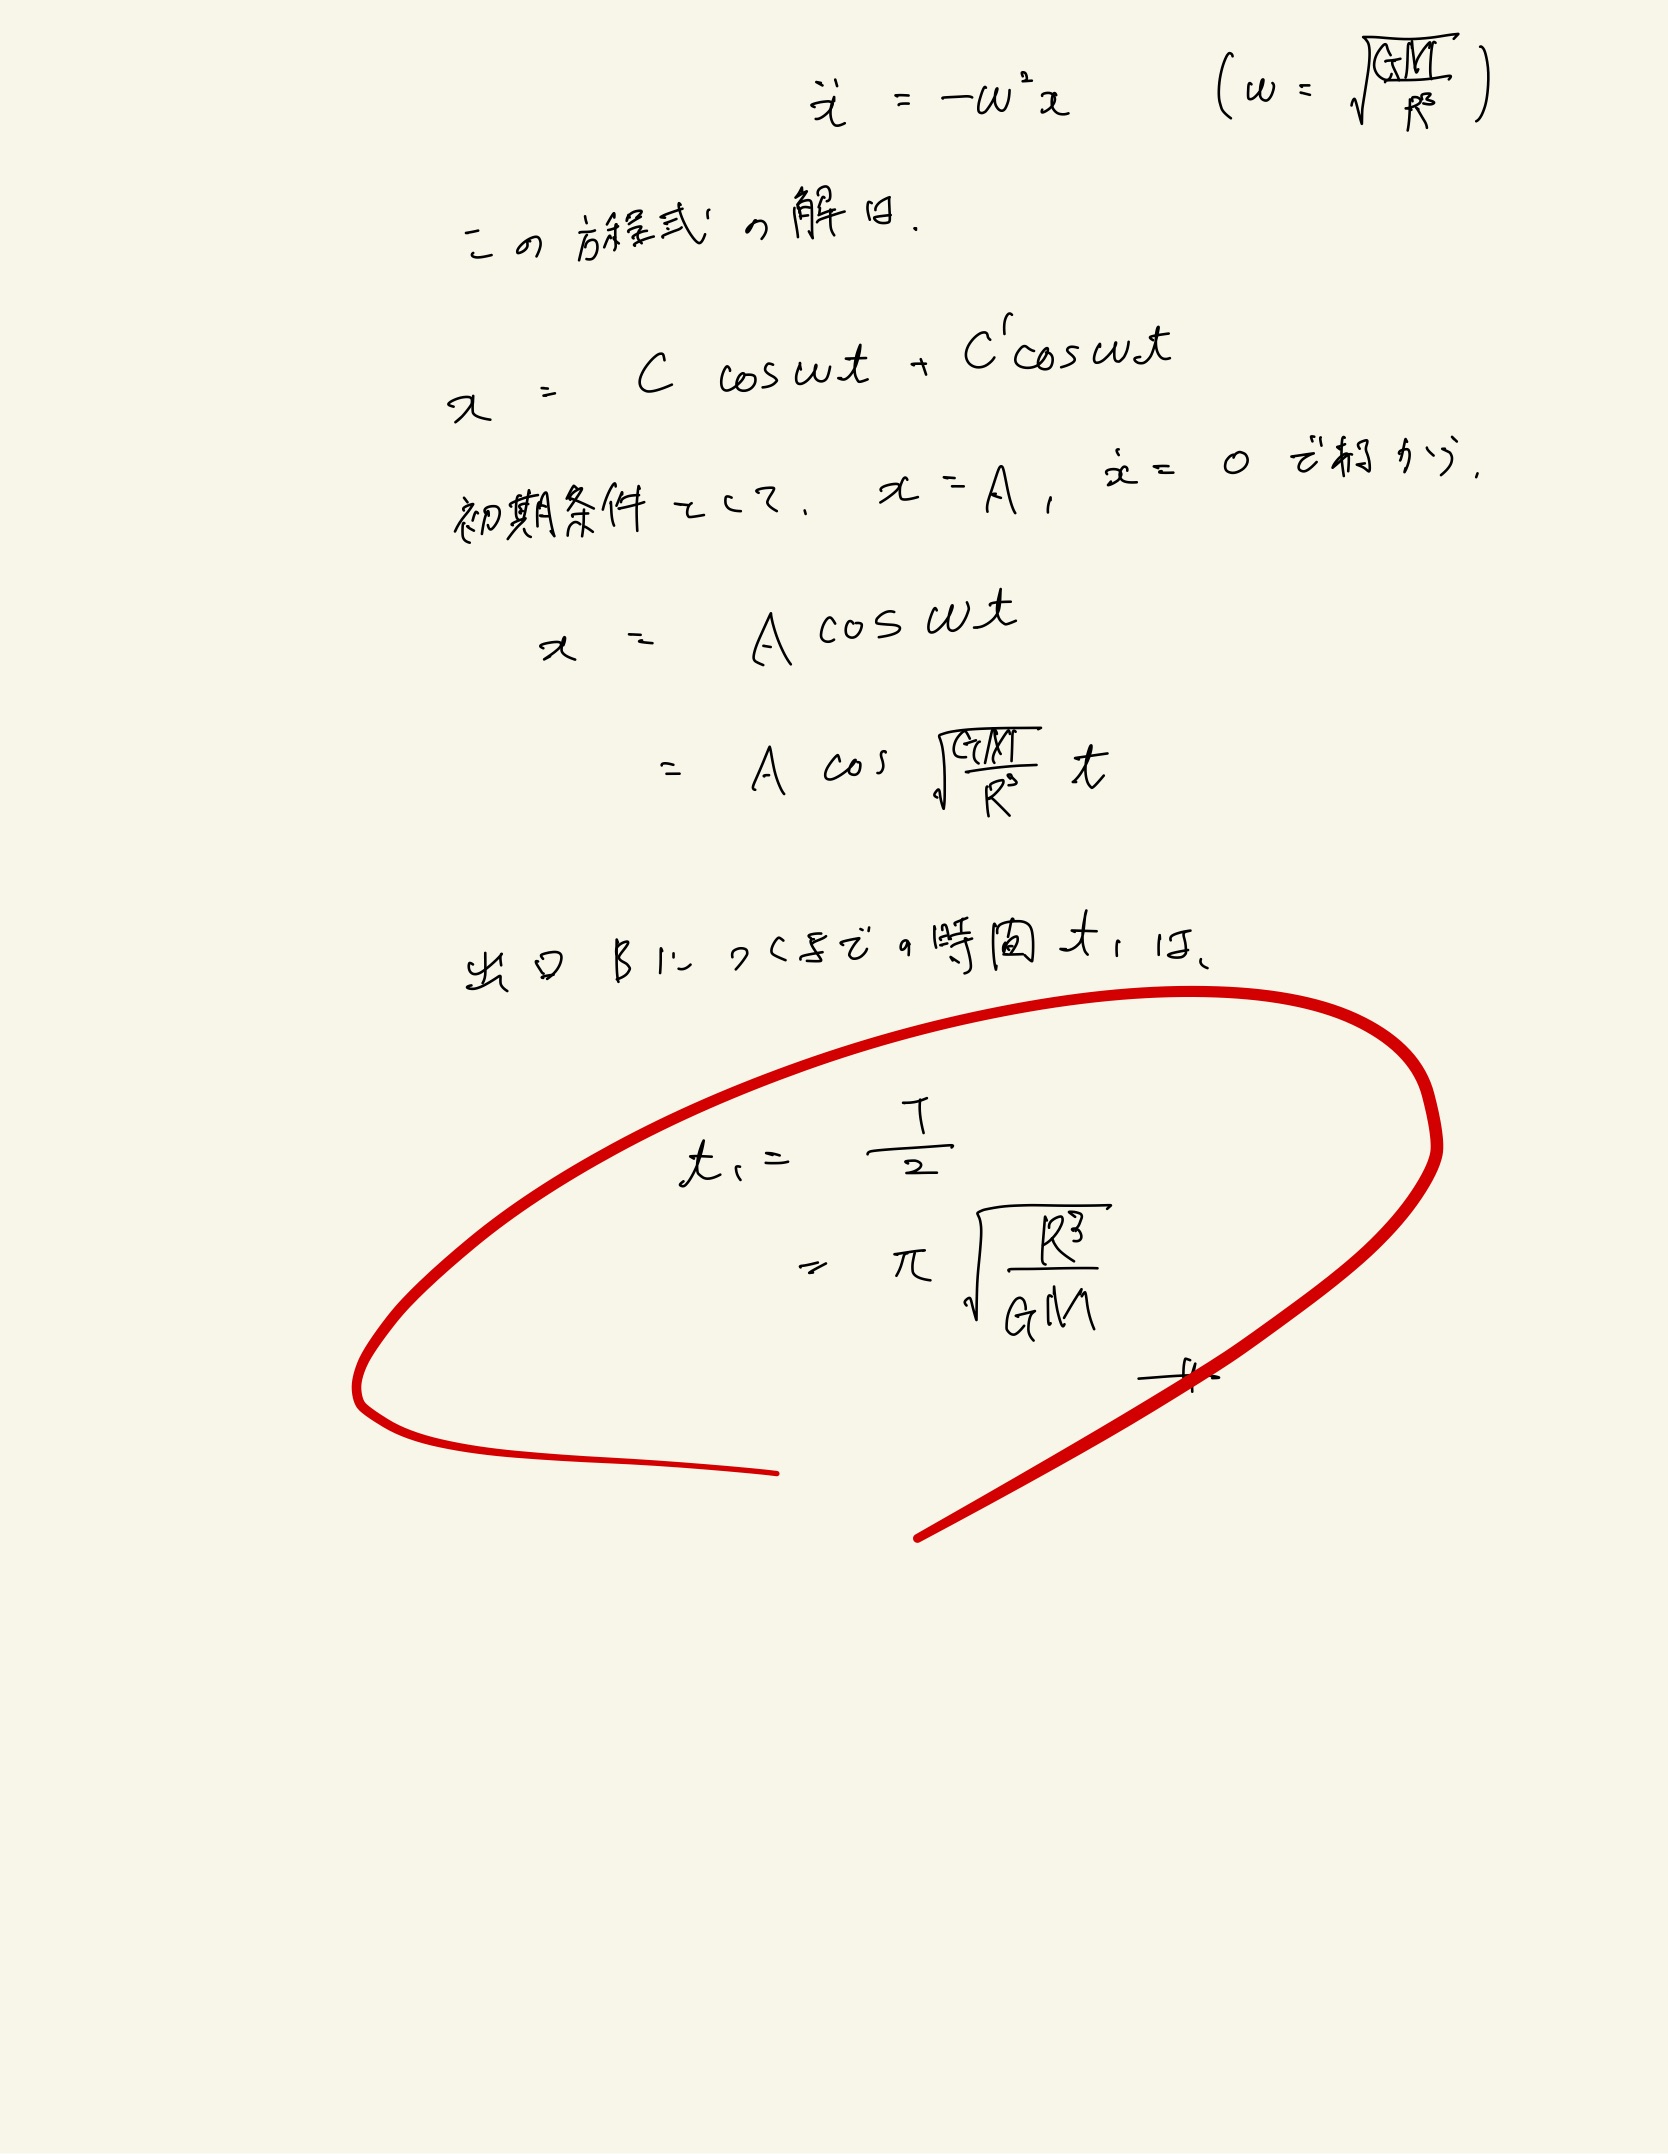 ẍ = -ω²x (ω = √(GM/R³))
この方程式の解は.
x = C cos ωt + C' cos ωt
初期条件として. x = A, ẋ = 0 であるから.
x = A cos ωt
= A cos √(GM/R³) t
出口 B につくまでの時間 t₁ は、
t₁ = T/2
= π √(R³/GM)